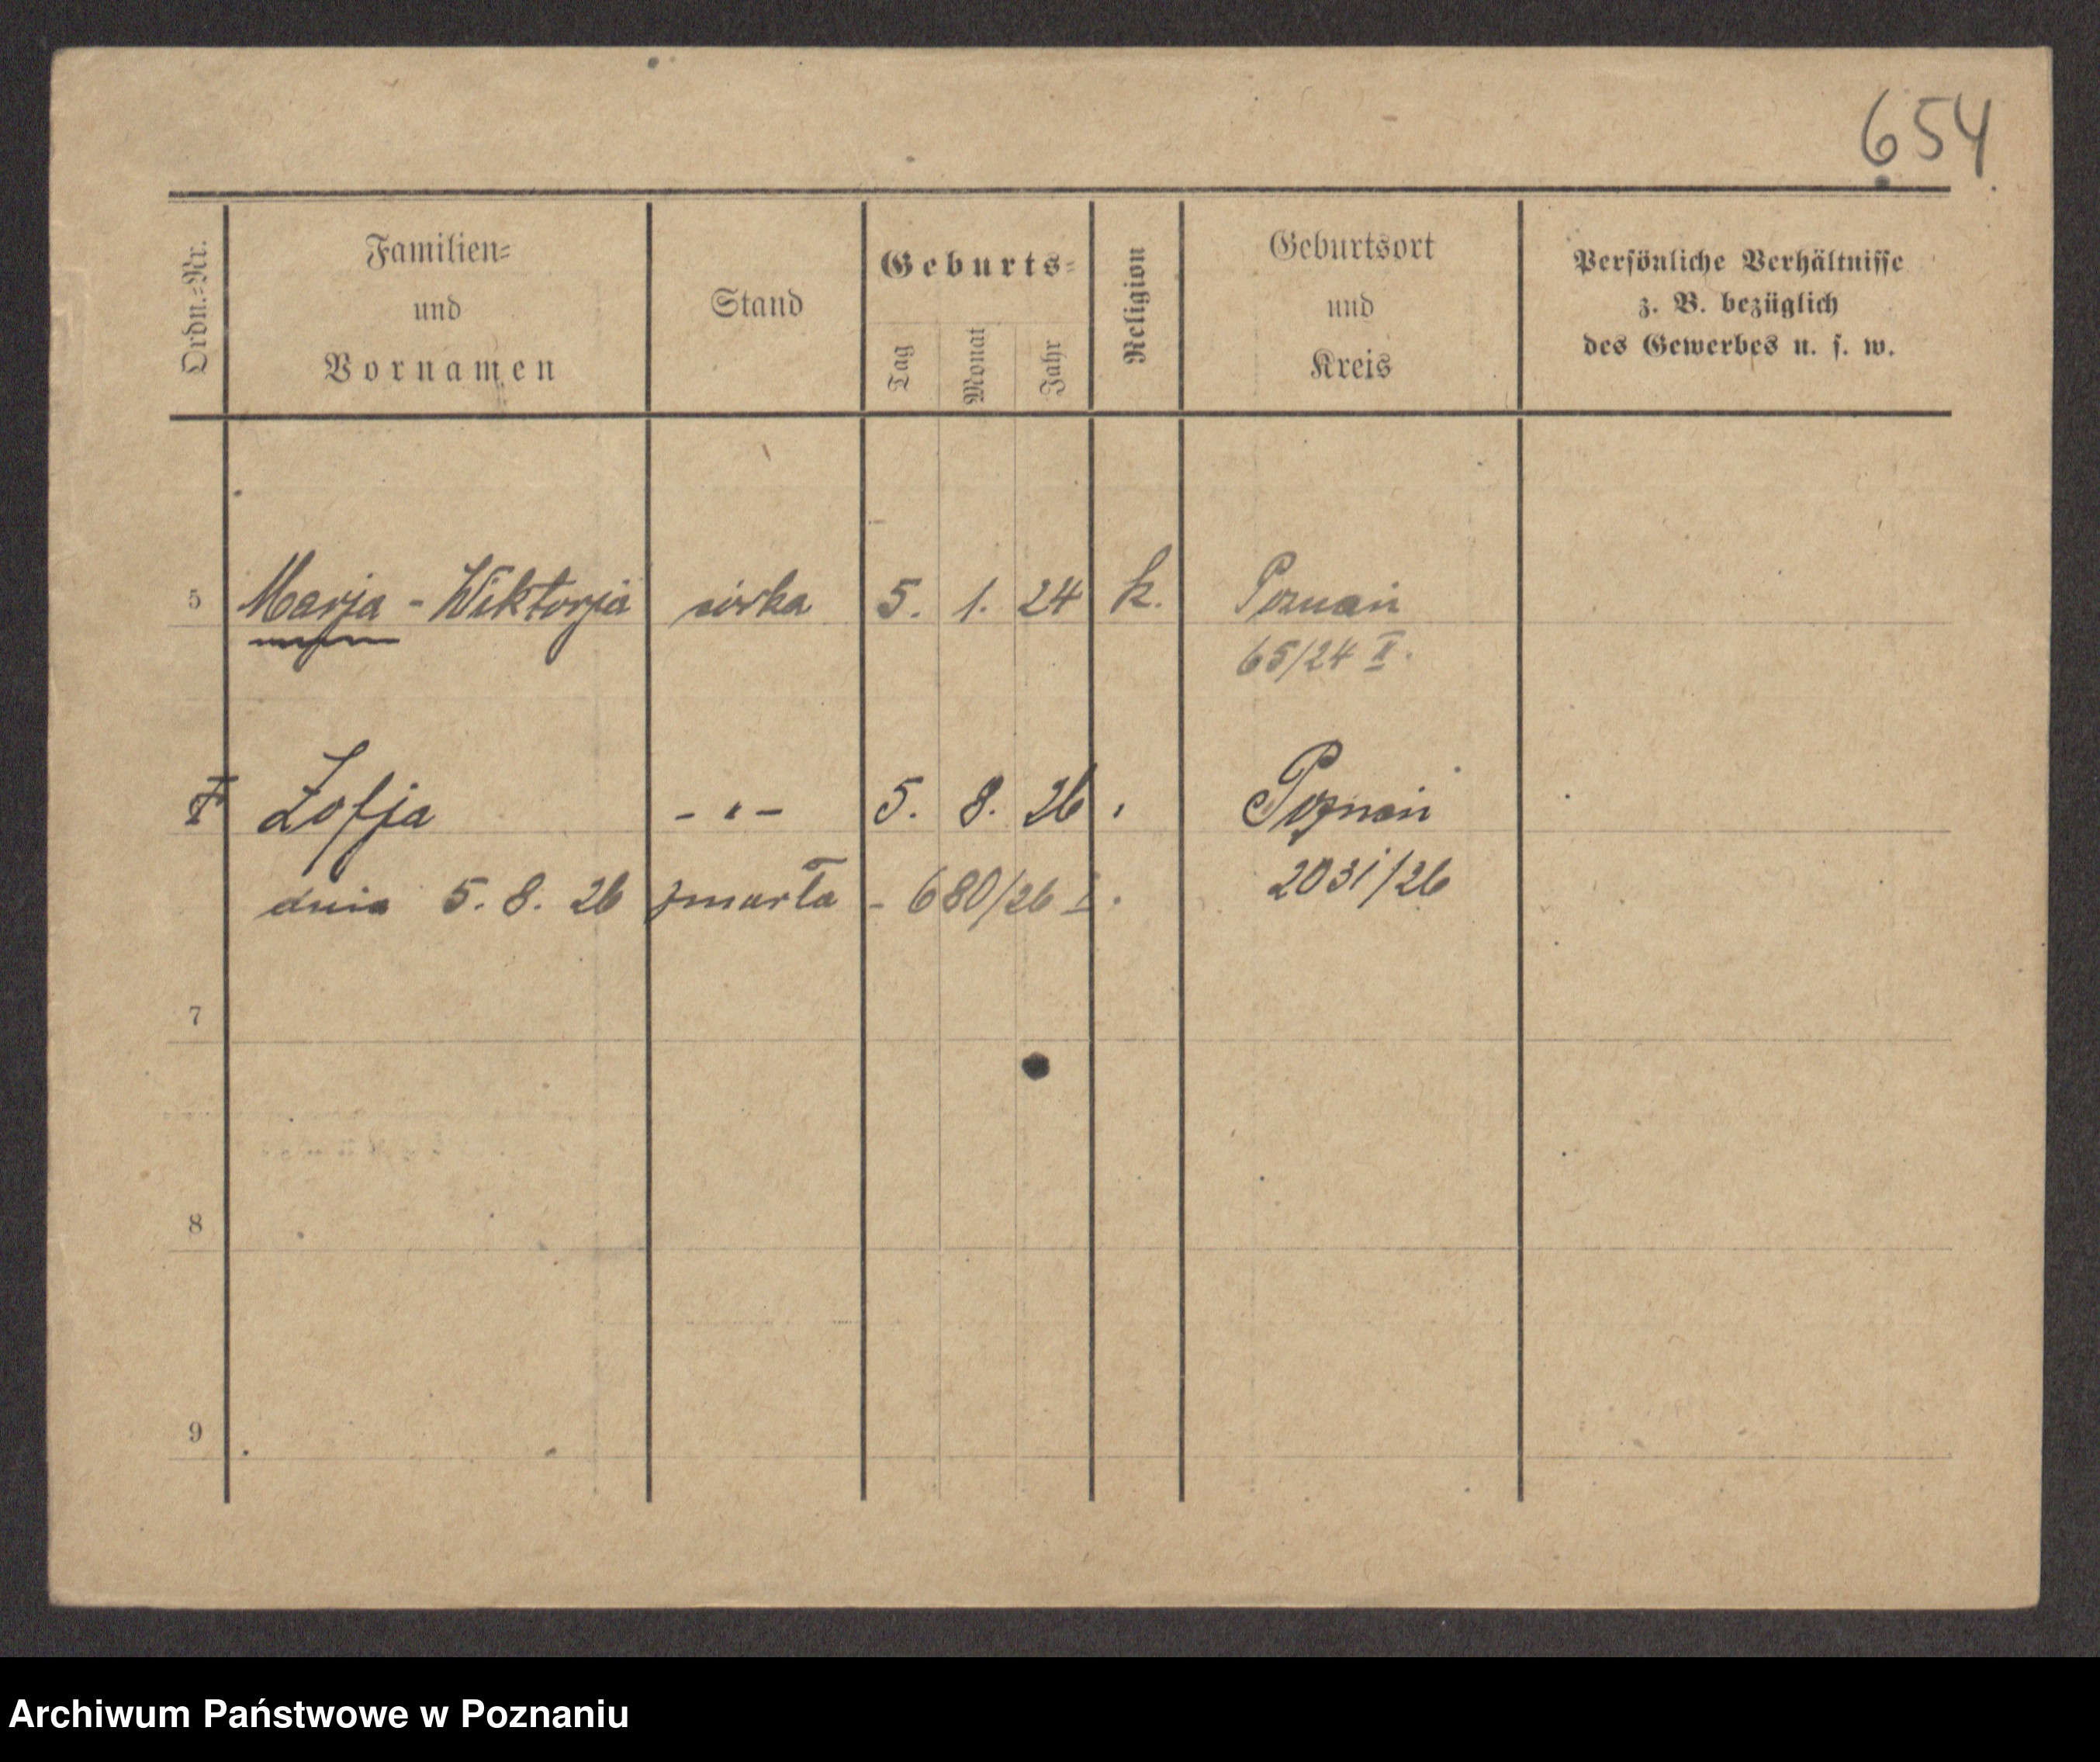 654
Ordn.=Nr.
Familien=
und
Vornamen
Stand
Geburts=
Tag
Monat
Jahr
Religion
Geburtsort
und
Kreis
Persönliche Verhältnisse
z. B. bezüglich
des Gewerbes u. s. w.
5 Marja - Wiktorja córka 5. 1. 24 k. Poznań
65/24 II.
Zofja - " - 5. 8. 26 " Poznań
dnia 5. 8. 26 zmarła - 680/26 I. 2031/26
7
8
9
Archiwum Państwowe w Poznaniu